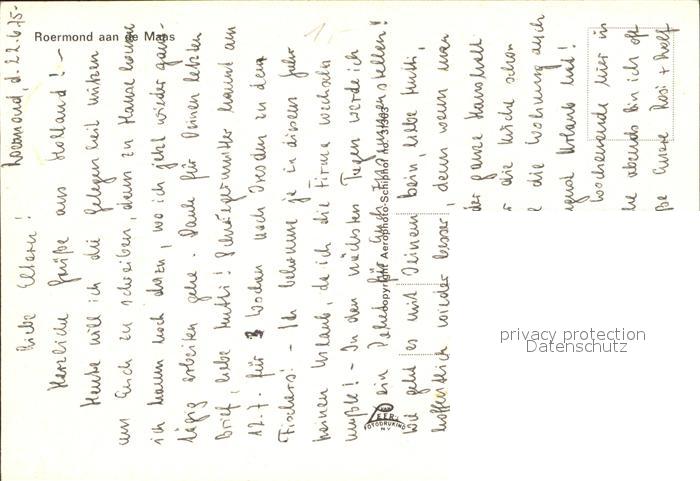 Roermond aan de Maas
Roermond, d. 22.6.75-
Liebe Eltern!
Herzliche Grüße aus Holland! -
Heute will ich die Gelegenheit nützen
um Euch zu schreiben, denn zu Hause komme
ich kaum noch dazu, wo ich jetzt wieder ganz-
tägig arbeiten gehe. Dank für Deinen letzten
Brief, liebe Mutti! Schwiegermutter kommt am
12.7. für 3 Wochen nach Dresden zu dem
Fischers! - Ich bekomme ja in diesem Jahr
keinen Urlaub, da ich die Firma wechseln
mußte! - In den nächsten Tagen werde ich
ein Paket für Euch zusammenstellen!
Wie geht es mit Deinem Bein, liebe Mutti,
hoffentlich wieder besser, denn wenn man
der ganze Haushalt
die Küche schon
die Wohnung auch
Urlaub sind!
Wochenende hier in
abends bin ich oft
Eure Rosi + Rolf
1,-
Copyright Aerophoto-Schiphol Nr. 31303
VAN LEER'S
FOTODRUKIND.
N.V.
privacy protection
Datenschutz